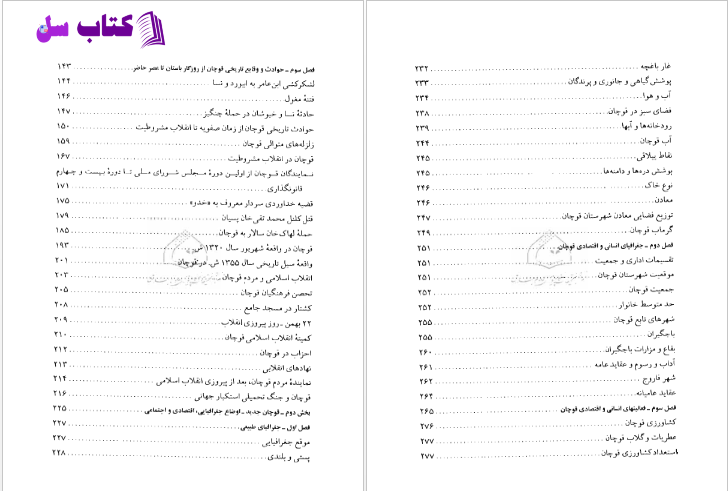 کتاب سل
فصل سوم ـ حوادث و وقایع تاریخی قوچان از روزگار باستان تا عصر حاضر ۱۴۳
لشکرکشی ابن‌عامر به ابیورد و نسا ۱۴۴
فتنهٔ مغول ۱۴۶
حادثهٔ نسا و خبوشان در حملهٔ چنگیز ۱۴۷
حوادث تاریخی قوچان از زمان صفویه تا انقلاب مشروطیت ۱۵۰
زلزله‌های متوالی قوچان ۱۵۹
قوچان در انقلاب مشروطیت ۱۶۷
نمایندگان قوچان از اولین دورهٔ مجلس شورای ملی تا دورهٔ بیست و چهارم
قانونگذاری ۱۷۱
قضیه خداوردی سردار معروف به خدو ۱۷۵
قتل کلنل محمد تقی‌خان پسیان ۱۷۹
حملهٔ لهاک‌خان سالار به قوچان ۱۸۵
قوچان در واقعهٔ شهریور سال ۱۳۲۰ ش ۱۹۳
واقعهٔ سیل تاریخی سال ۱۳۵۵ ش. در قوچان ۲۰۱
انقلاب اسلامی و مردم قوچان ۲۰۳
تحصن فرهنگیان قوچان ۲۰۵
کشتار در مسجد جامع ۲۰۸
۲۲ بهمن ـ روز پیروزی انقلاب
کمیتهٔ انقلاب اسلامی قوچان ۲۱۰
احزاب در قوچان ۲۱۲
نهادهای انقلابی ۲۱۳
نمایندهٔ مردم قوچان، بعد از پیروزی انقلاب اسلامی ۲۱۴
قوچان و جنگ تحمیلی استکبار جهانی ۲۱۶
بخش دوم ـ قوچان جدید ـ اوضاع جغرافیایی، اقتصادی و اجتماعی ۲۲۵
فصل اول ـ جغرافیای طبیعی ۲۲۷
موقع جغرافیایی ۲۲۷
پستی و بلندی ۲۲۸
غار باغچه ۲۳۲
پوشش گیاهی و جانوری و پرندگان ۲۳۳
آب و هوا ۲۳۴
فضای سبز در قوچان ۲۳۸
رودخانه‌ها و آبها ۲۳۹
آب قوچان ۲۴۴
نقاط ییلاقی ۲۴۵
پوشش دره‌ها و دامنه‌ها ۲۴۵
نوع خاک ۲۴۶
معادن ۲۴۶
توزیع فضایی معادن شهرستان قوچان ۲۴۷
گرماب قوچان ۲۴۹
فصل دوم ـ جغرافیای انسانی و اقتصادی قوچان ۲۵۱
تقسیمات اداری و جمعیت ۲۵۱
موقعیت شهرستان قوچان ۲۵۱
جمعیت قوچان ۲۵۲
حد متوسط خانوار ۲۵۲
شهرهای تابع قوچان ۲۵۵
باجگیران ۲۵۵
بقاع و مزارات باجگیران ۲۶۰
آداب و رسوم و عقاید عامه ۲۶۱
شهر فاروج ۲۶۲
عقاید عامیانه ۲۶۴
فصل سوم ـ فعالیتهای انسانی و اقتصادی قوچان ۲۶۵
کشاورزی قوچان ۲۷۶
عطریات و گلاب قوچان ۲۷۷
استعداد کشاورزی قوچان ۲۷۷